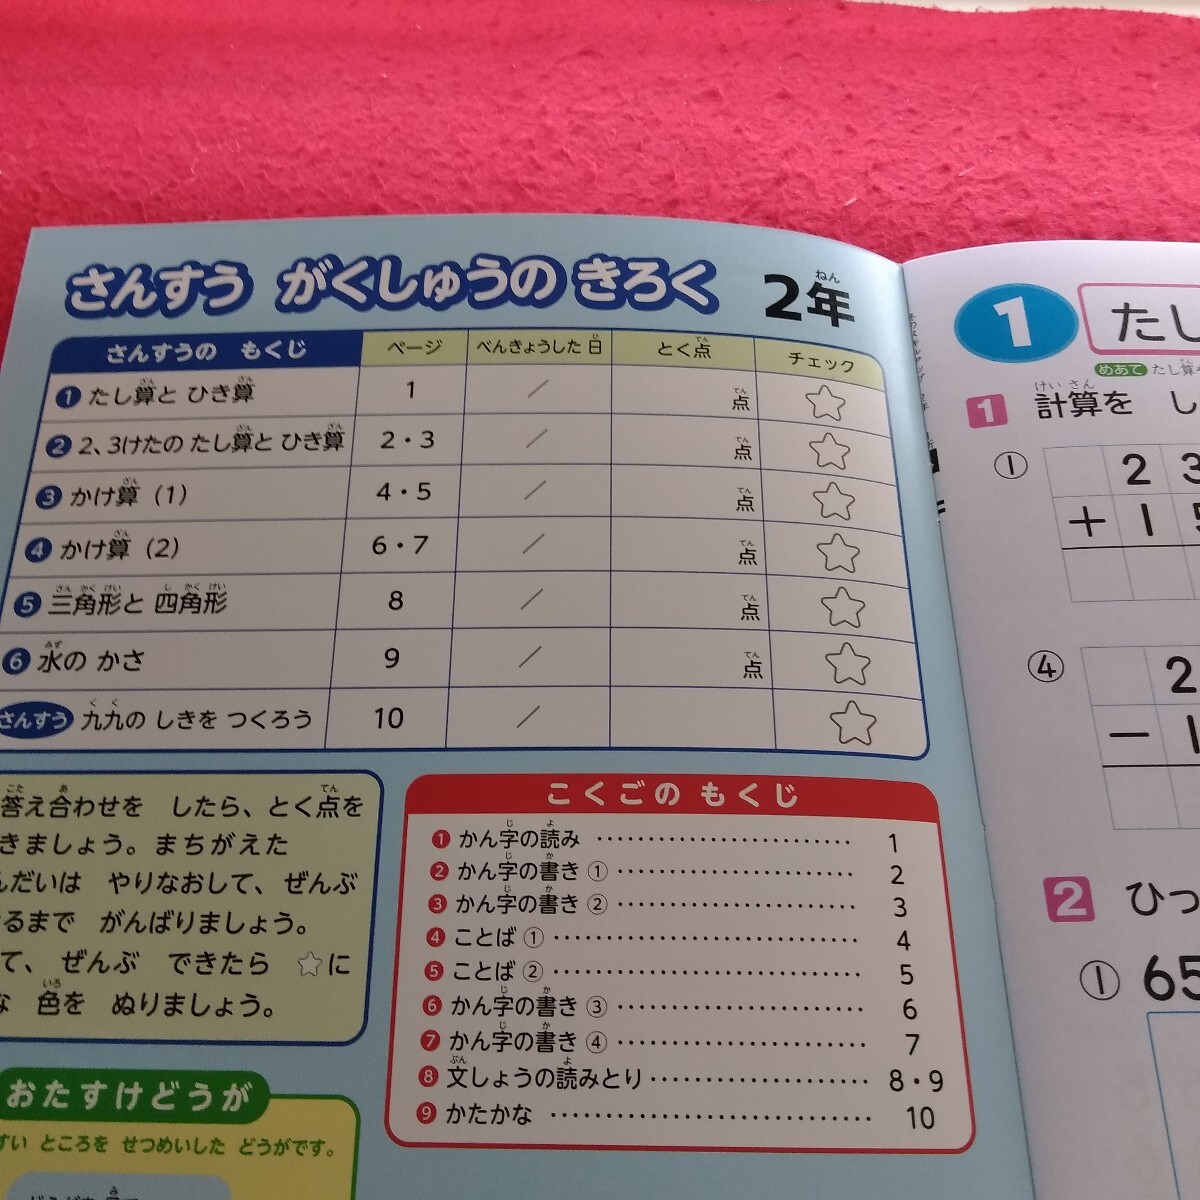 さんすう がくしゅうの きろく 2年
さんすうの もくじ ページ べんきょうした日 とく点 チェック
❶ たし算と ひき算 1 / 点 ☆
❷ 2、3けたの たし算と ひき算 2・3 / 点 ☆
❸ かけ算 (1) 4・5 / 点 ☆
❹ かけ算 (2) 6・7 / 点 ☆
❺ 三角形と 四角形 8 / 点 ☆
❻ 水の かさ 9 / 点 ☆
さんすう 九九の しきを つくろう 10 / ☆
答え合わせを したら、とく点を
きましょう。まちがえた
んだいは やりなおして、ぜんぶ
るまで がんばりましょう。
て、ぜんぶ できたら ☆に
な 色を ぬりましょう。
こくごの もくじ
❶ かん字の読み 1
❷ かん字の書き ① 2
❸ かん字の書き ② 3
❹ ことば ① 4
❺ ことば ② 5
❻ かん字の書き ③ 6
❼ かん字の書き ④ 7
❽ 文しょうの読みとり 8・9
❾ かたかな 10
おたすけどうが
すい ところを せつめいした どうがです。
1 たし
めあて たし算
1 計算を し
① 2 3
+ 1 5
④ 2
− 1
2 ひっ
① 65